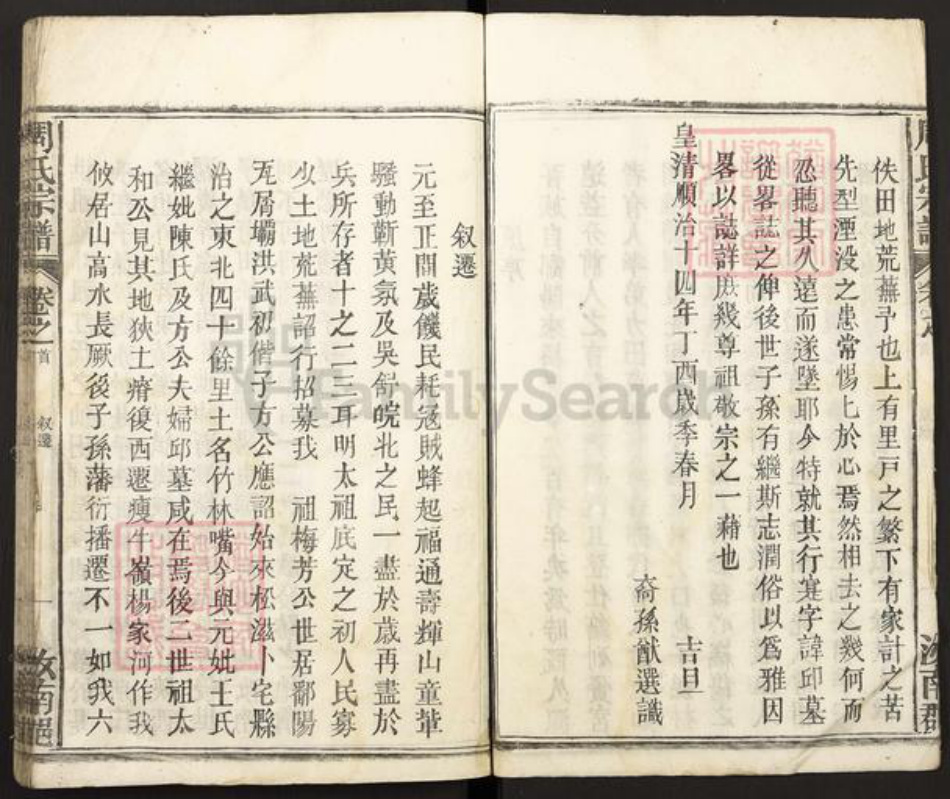 佚田地荒蕪予也上有里戸之繁下有家計之苦
先型湮没之患常惕上於心焉然相去之幾何而
忍聽其久遠而遂墜耶今特就其行寔字諱邱墓
從畧誌之俾後世子孫有繼斯志潤俗以爲雅因
畧以誌詳庶幾尊祖敬宗之一藉也
皇清順治十四年丁酉歳季春月
吉旦
裔孫猷選識
叙遷
元至正間歳饑民耗冦賊蜂起福通壽輝山童輩
騷動蘄黄氛及吳舒皖北之民一盡於歳再盡於
兵所存者十之二三耳明太祖底定之初人民寡
少土地荒蕪詔行招募我 祖梅芳公世居鄱陽
瓦屑壩洪武初偕子方公應詔始來松滋卜宅縣
治之東北四十餘里土名竹林嘴今與元妣王氏
繼妣陳氏及方公夫婦邱墓咸在焉後二世祖太
和公見其地狹土瘠復西遷瘦牛嶺楊家河作我
攸居山高水長厥後子孫藩衍播遷不一如我六
周氏宗譜
卷之
首
叙遷
一
汝南
FamilySearch